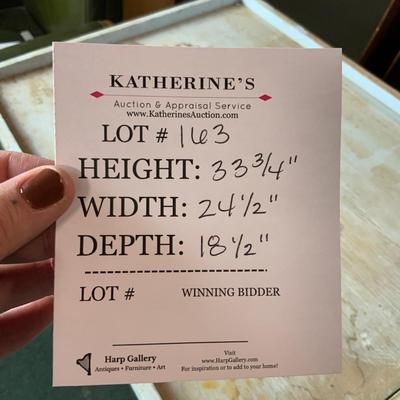 KATHERINE'S
Auction & Appraisal Service
www.KatherinesAuction.com
LOT # 163
HEIGHT: 33 3/4"
WIDTH: 24 1/2"
DEPTH: 18 1/2"
LOT # WINNING BIDDER
Harp Gallery
Antiques • Furniture • Art
Visit
www.HarpGallery.com
For inspiration or to add to your home!